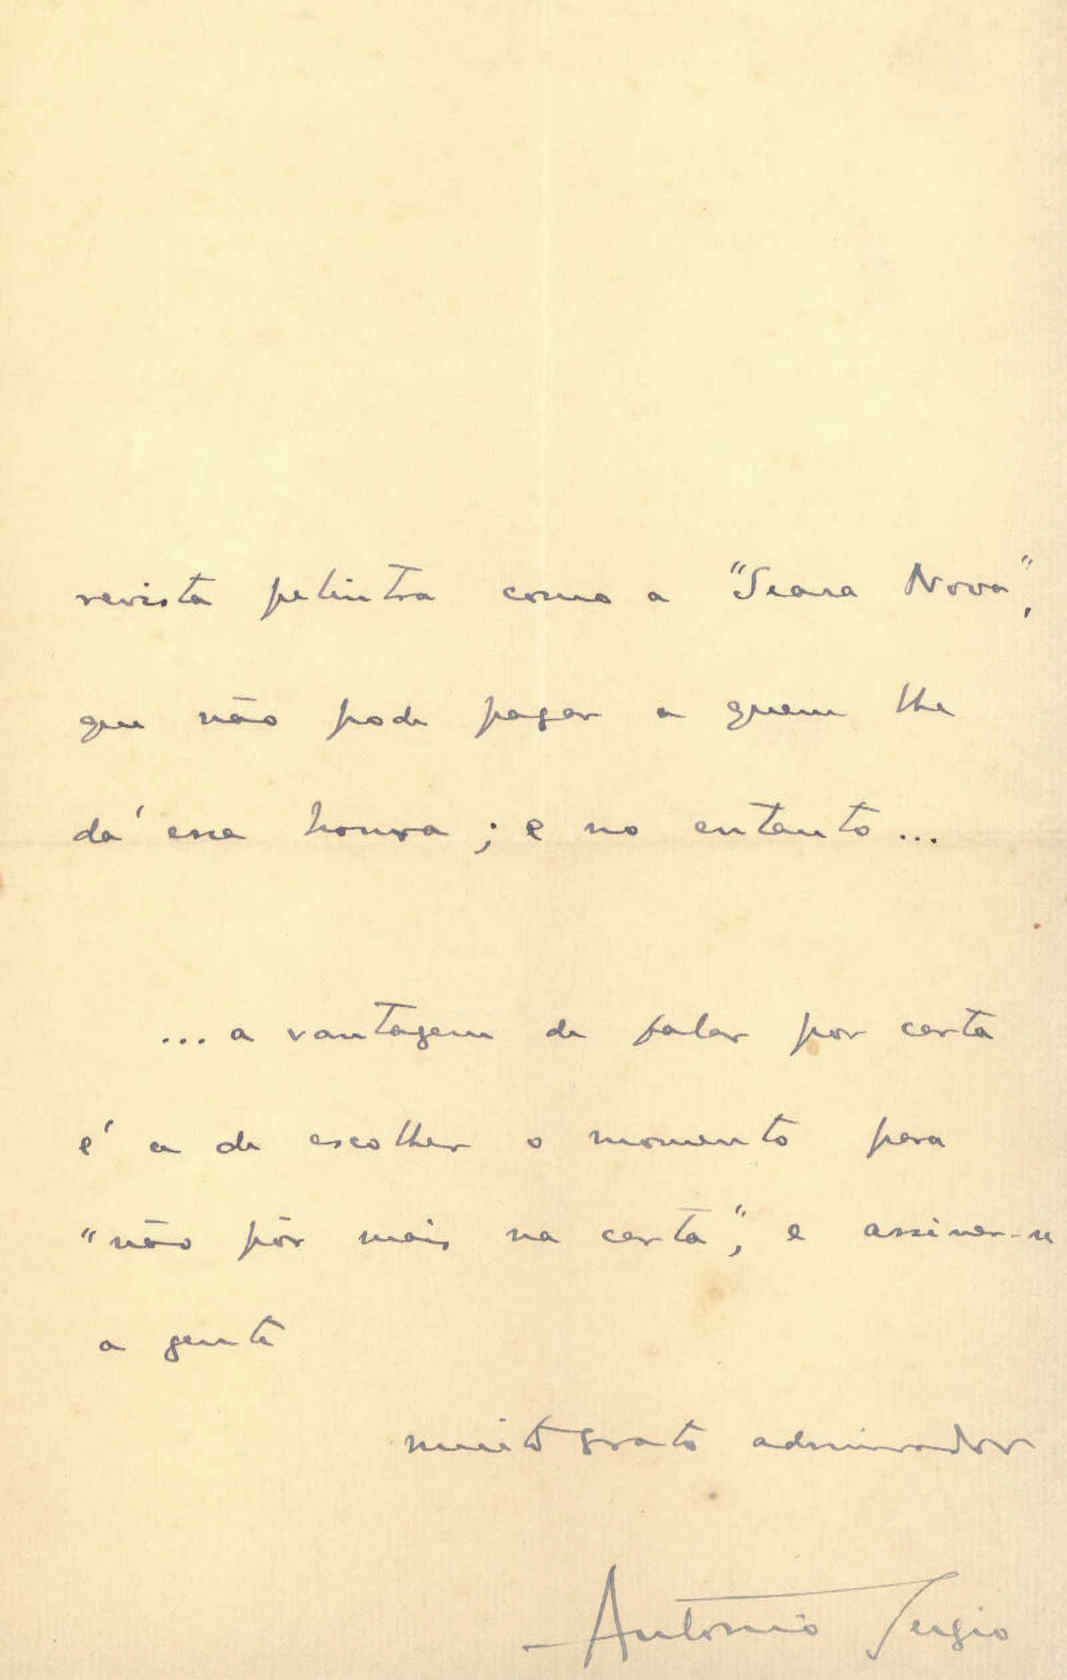 revista pelintra como a "Seara Nova",
que não pode pagar a quem lhe
dá essa honra; e no entanto...
...a vantagem de falar por carta
é a de escolher o momento para
"não pôr mais na carta", e assinar-se
a gente
muito grato admirador
Antonio Sergio